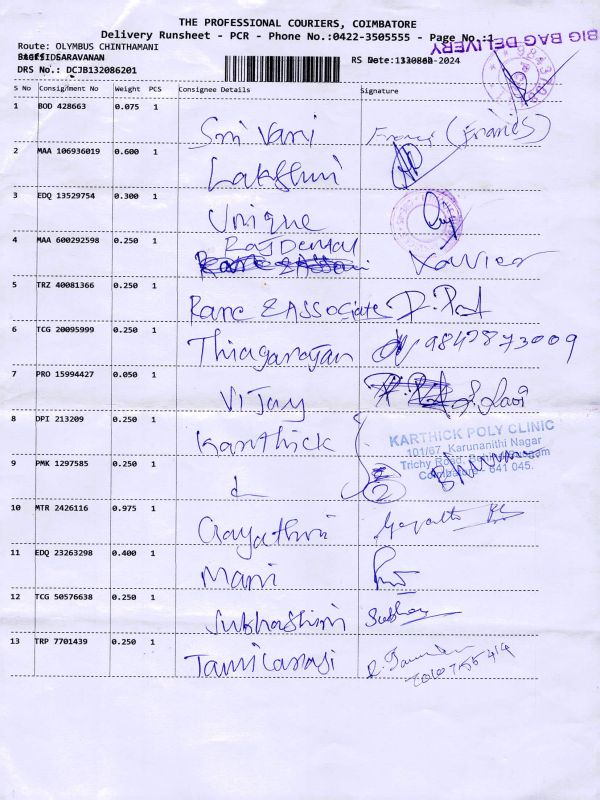 THE PROFESSIONAL COURIERS, COIMBATORE
Delivery Runsheet - PCR - Phone No.:0422-3505555 - Page No.:1
BIG BAG DELIVERY
Route: OLYMBUS CHINTHAMANI
SARAVANAN
DRS No.: DCJB132086201
S No Consignment No Weight PCS Consignee Details Signature
1 BOD 428663 0.075 1 Sri Vari (Francis)
2 MAA 106936019 0.600 1 Lakshmi
3 EDQ 13529754 0.300 1 Unique
4 MAA 600292598 0.250 1 Raj Dental Xavier
5 TRZ 40081366 0.250 1 Rane & Associate
6 TCG 20095999 0.250 1 Thiagarajan 9842873009
7 PRO 15994427 0.050 1 Vijay
8 DPI 213209 0.250 1 Karthick
KARTHICK POLY CLINIC
101/67, Karunanithi Nagar
Trichy Road,
Coimbatore - 641 045.
9 PMK 1297585 0.250 1 2
10 MTR 2426116 0.975 1 Gayathri
11 EDQ 23263298 0.400 1 Mani
12 TCG 50576638 0.250 1 Subhashini
13 TRP 7701439 0.250 1 Tamilarasi